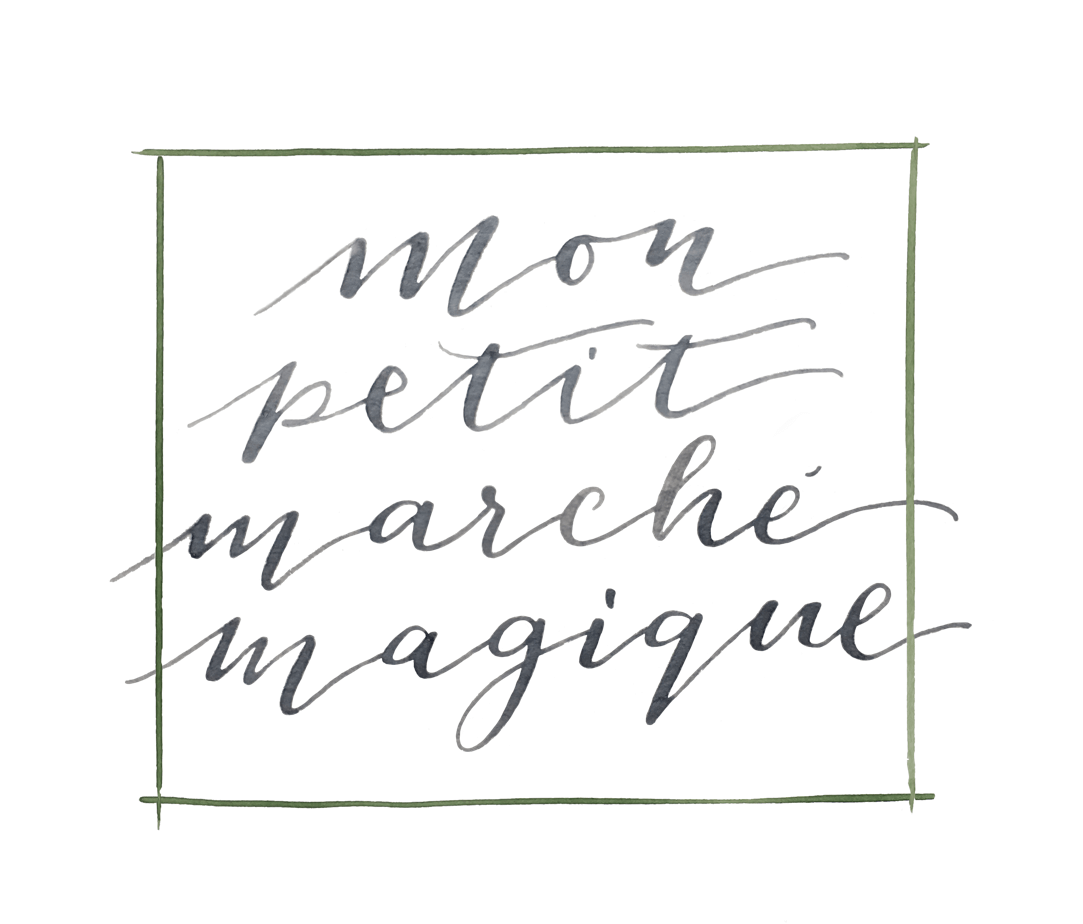 mon
petit
marché
magique